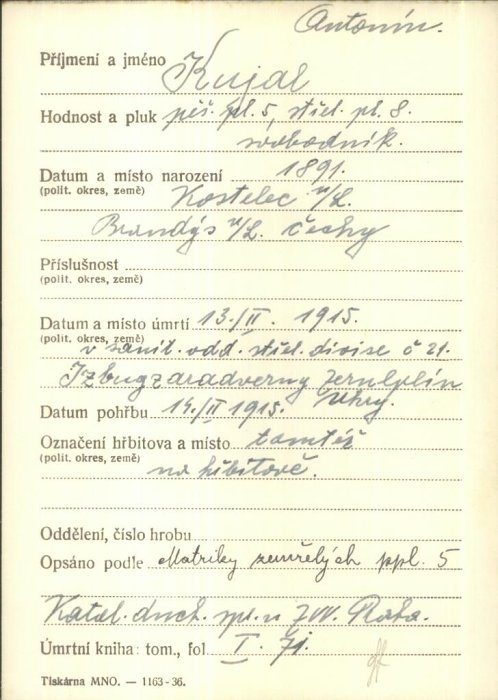 Antonín.
Příjmení a jméno Kujal
Hodnost a pluk pěš. pl. 5, střel. pl. 8.
svobodník.
Datum a místo narození 1891.
(polit. okres, země) Kostelec n/L.
Brandýs n/L. Čechy
Příslušnost
(polit. okres, země)
Datum a místo úmrtí 13./II. 1915.
(polit. okres, země) v sanit. odd. střel. divise č 21.
Izbugzaradverny Zemplín
Uhry.
Datum pohřbu 14./II 1915.
Označení hřbitova a místo tamtéž
(polit. okres, země) na hřbitově.
Oddělení, číslo hrobu
Opsáno podle Matriky zemřelých ppl. 5
Katal. duch. spr. ZVV. Praha.
Úmrtní kniha: tom., fol I. 71.
Tiskárna MNO. — 1163-36.